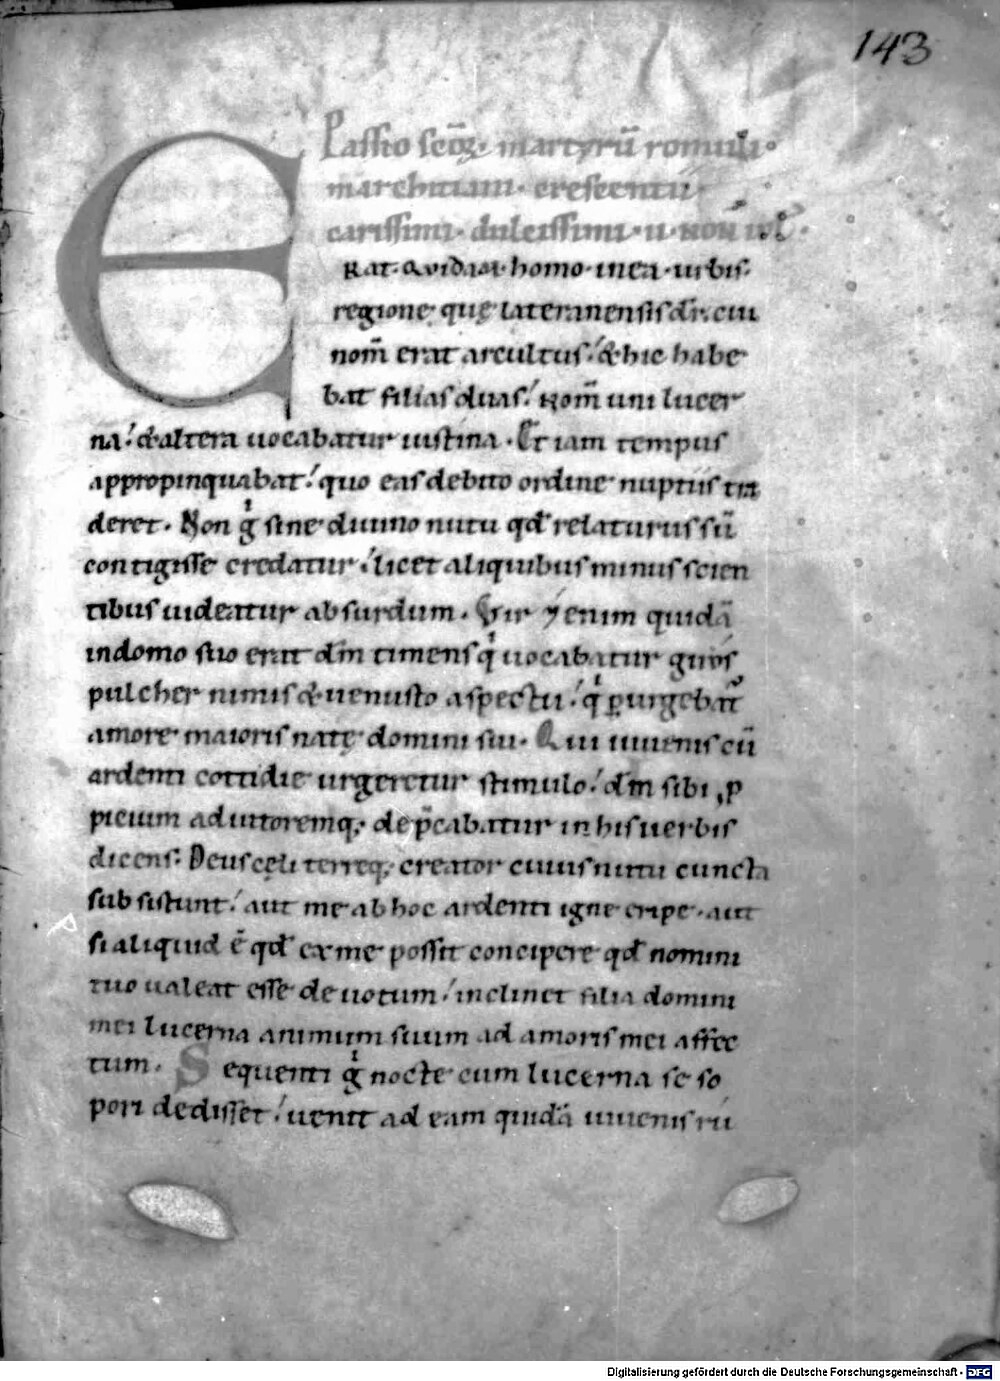 143
Passio scōꝝ· martyrū romuli·
marchiani· crescentii·
carissimi· dulcissimi· ii· non iul̄·
ERAT· QVIDAM· homo· in ea· urbis·
regione que lateranensis dr̄· cui
nom̄ erat arcultus· & hic habe
bat filias duas· Nom̄ uni lucer
na· & altera uocabatur iustina· Et iam tempus
appropinquabat· quo eas debito ordine nuptiis tra
deret· Non gͥ sine diuino nutu qđ relaturus sū
contigisse credatur· licet aliquibus minus scien
tibus uideatur absurdum· Vir enim quidā
in domo suo erat dm̄ timens qͥ uocabatur
pulcher nimis & uenusto aspectu· qͥ ꝑurgebat᷑
amore maioris natę domini sui· Qui iuuenis cū
ardenti cottidie urgeretur stimulo· dm̄ sibi ꝓ
picium adiutoremq; dep̄cabatur in his uerbis
dicens· Deus cęli terreq; creator cuius nutu cuncta
subsistunt· aut me ab hoc ardenti igne eripe· aut
si aliquid ē qđ ex me possit concipere qđ nomini
tuo ualeat esse deuotum· inclinet filia domini
mei lucerna animum suum ad amoris mei affec
tum· Sequenti gͥ nocte cum lucerna se so
pori dedisset· uenit ad eam quidā iuuenis rū
Digitalisierung gefördert durch die Deutsche Forschungsgemeinschaft - DFG